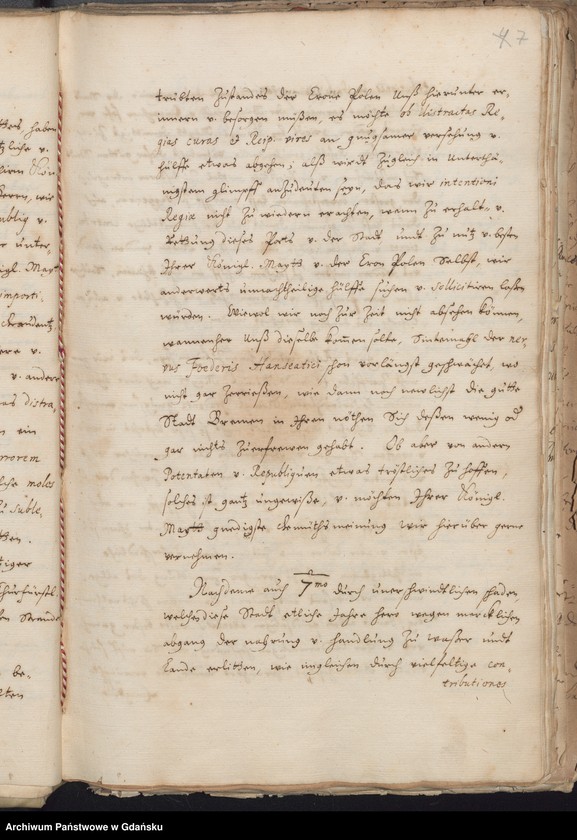 47
trübten Zustandes der Crone Polen Unß hierunter er-
innern v. besorgen müßen, es möchte ob distractas Re-
gias curas et Reip. vires an gnugsamer versehung v.
hülffe etwas abgehen; alß wirdt Zugleich in Unterthä-
nigstem glimpff anzudeuten seyn, das wir intentioni
Regiæ nicht Zu wiedern erachten, wann Zu erhalt- v.
Rettung dieses Ports v. der Stadt undt Zu nutz v. besten
Ihrer Königl. Maytt v. der Cron Polen Selbst, wir
anderwerts unnachtheilige hülffe suchen v. sollicitiren laßen
würden. Wiewol wir noch Zur Zeit nicht absehen können,
wannenher Unß dieselbe kommen solte, Sintemahl der ner-
vus Foederis Hanseatici schon vorlängst geschwächt, wo
nicht gar Zerrießen, wie dann noch newlichst die gutte
Stadt Bremen in Ihren nöthen Sich deßen wenig od
gar nichts Zuerfrewen gehabt. Ob aber von andern
Potentaten v. Republiquen etwas tröstliches Zu hoffen,
solches ist gantz ungewiße, v. möchten Ihrer Königl.
Maytt gnedigste gemüthsmeinung wir hierüber gerne
vernehmen.
Nachdeme auch 7mo durch unerschwindtlichen schaden
welchen diese Stadt etliche Jahre hero wegen mercklichen
abgang der nahrung v. handlung Zu waßer undt
Lande erlitten, wie imgleichen durch vielfeltige con-
tributiones
Archiwum Państwowe w Gdańsku